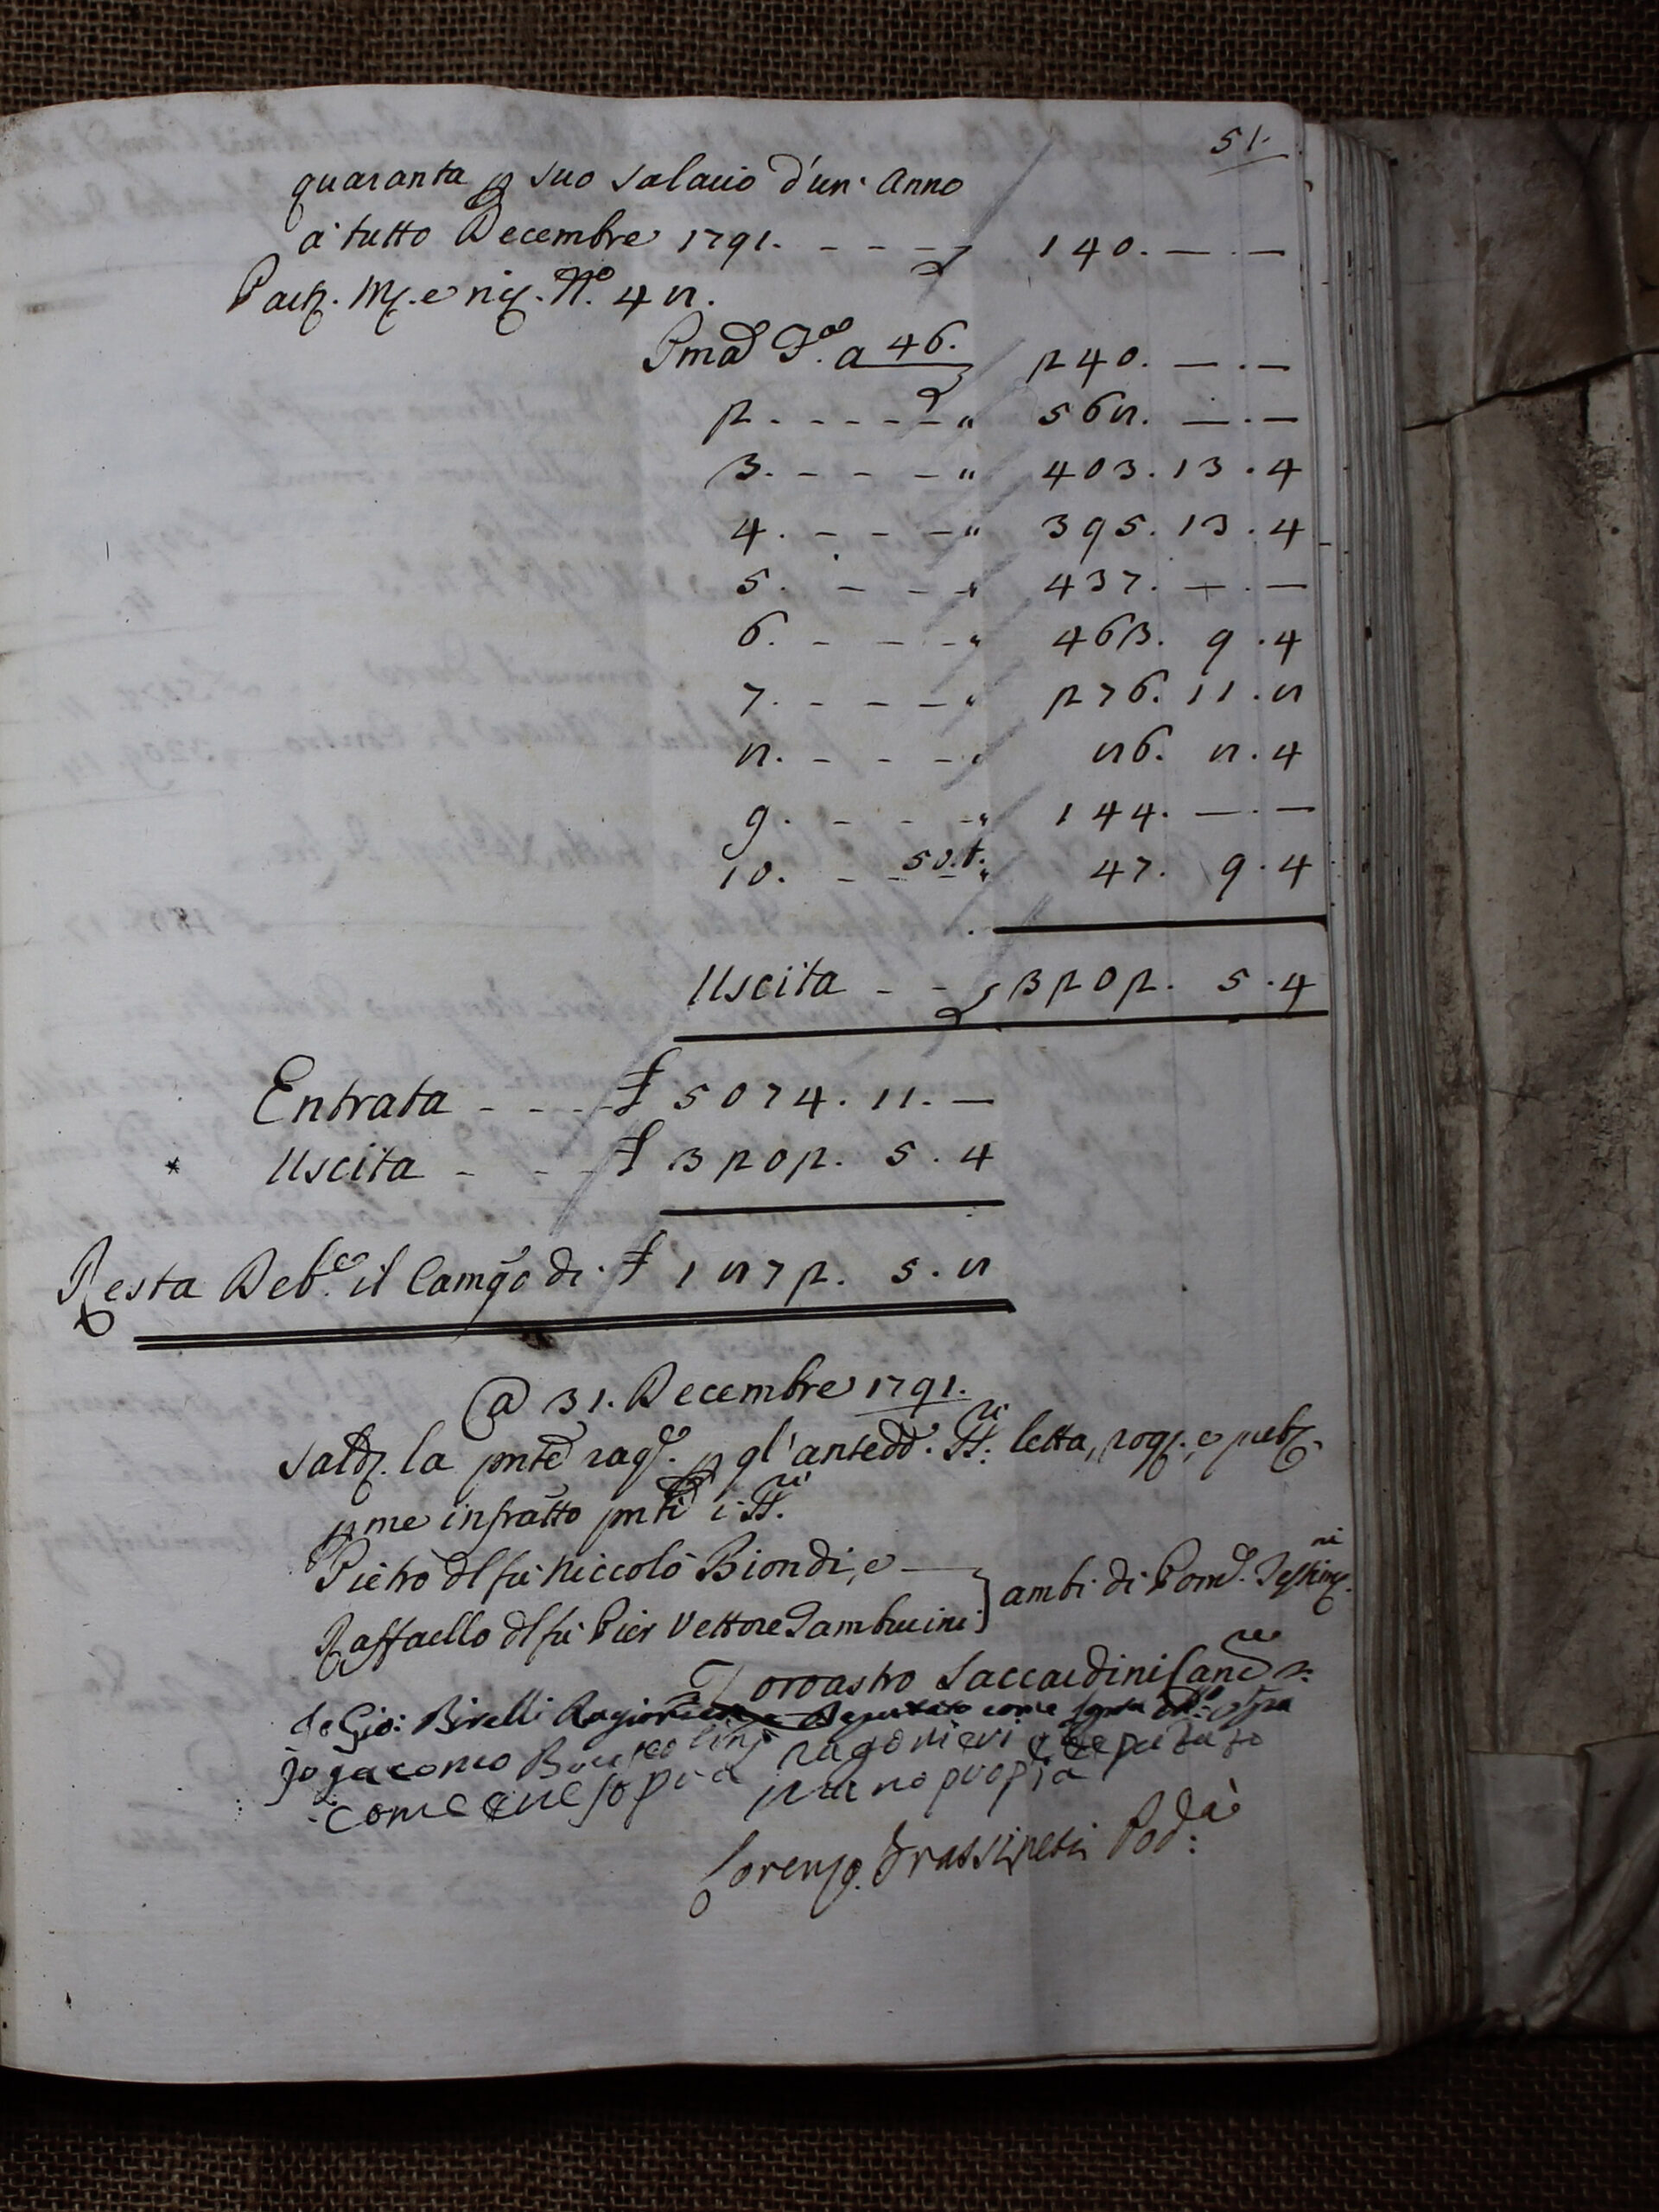 51.
quaranta p suo salario d'un' Anno
a' tutto Decembre 1791. - - - - 140. — . —
Part. M. e rig. N.º 48.
Pma Fª a 46. 240. — . —
2. - - - - - " 568. — . —
3. - - - - " 403. 13 . 4
4. - - - - " 395. 13 . 4
5. - - - " 437. — . —
6. - - - " 463. 9 . 4
7. - - - - " 276. 11 . 8
8. - - - - " 86. 8 . 4
9. - - - - " 144. — . —
10. - - 50.t. " 47. 9 . 4
Uscita - - 3202. 5 . 4
Entrata - - - - £ 5074. 11. —
* Uscita - - - £ 3202. 5 . 4
Resta Deb.e il Camgo di £ 1872. 5 . 8
@ 31. Decembre 1791.
Sald. la pnte rag.e p gl' antedd. TT.ri letta, rog. e pub.
p me infratto pnti i TT.ri
Pietro dl fù Niccolò Biondi, e —
Raffaello dl fù Pier Vettore Tamburini } ambi di Pom.
Zoroastro Saccardini Canc.re
Io Gio: Birelli Ragioniere Deputato come sopra
Io Jacomo ragonieri e deputato
come que sopra mano propia
Lorenzo Frassineti Pod.à